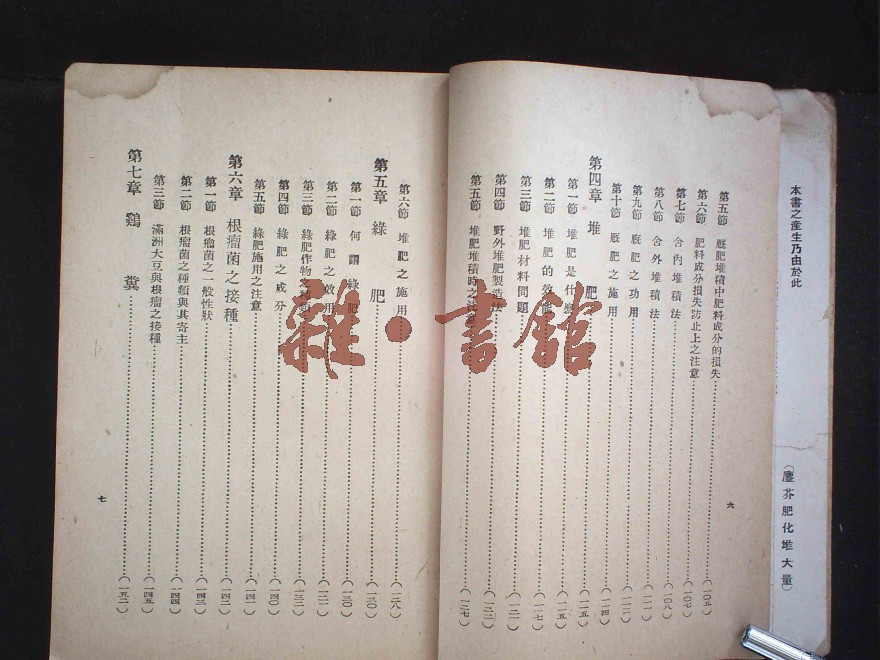 本書之產生乃由於此
(塵芥肥化堆大量)
第五節 厩肥堆積中肥料成分的損失 (一〇五)
第六節 肥料成分損失防止上之注意 (一〇七)
第七節 舍內堆積法 (一〇八)
第八節 舍外堆積法 (一一一)
第九節 厩肥之功用 (一一二)
第十節 厩肥之施用 (一一四)
第四章 堆 肥 (一一五)
第一節 堆肥是什麼 (一一五)
第二節 堆肥的效能 (一一七)
第三節 堆肥材料問題 (一二一)
第四節 野外堆肥製造法 (一二三)
第五節 堆肥堆積時之注意 (一二七)
六
第六節 堆肥之施用 (一二八)
第五章 綠 肥 (一三〇)
第一節 何謂綠肥 (一三〇)
第二節 綠肥之效用 (一三一)
第三節 綠肥作物之種類 (一三二)
第四節 綠肥之成分 (一四〇)
第五節 綠肥施用之注意 (一四一)
第六章 根瘤菌之接種 (一四二)
第一節 根瘤菌之一般性狀 (一四三)
第二節 根瘤菌之種類與其寄主 (一四四)
第三節 滿洲大豆與根瘤之接種 (一四五)
第七章 鷄 糞 (一五二)
七
雜·書館